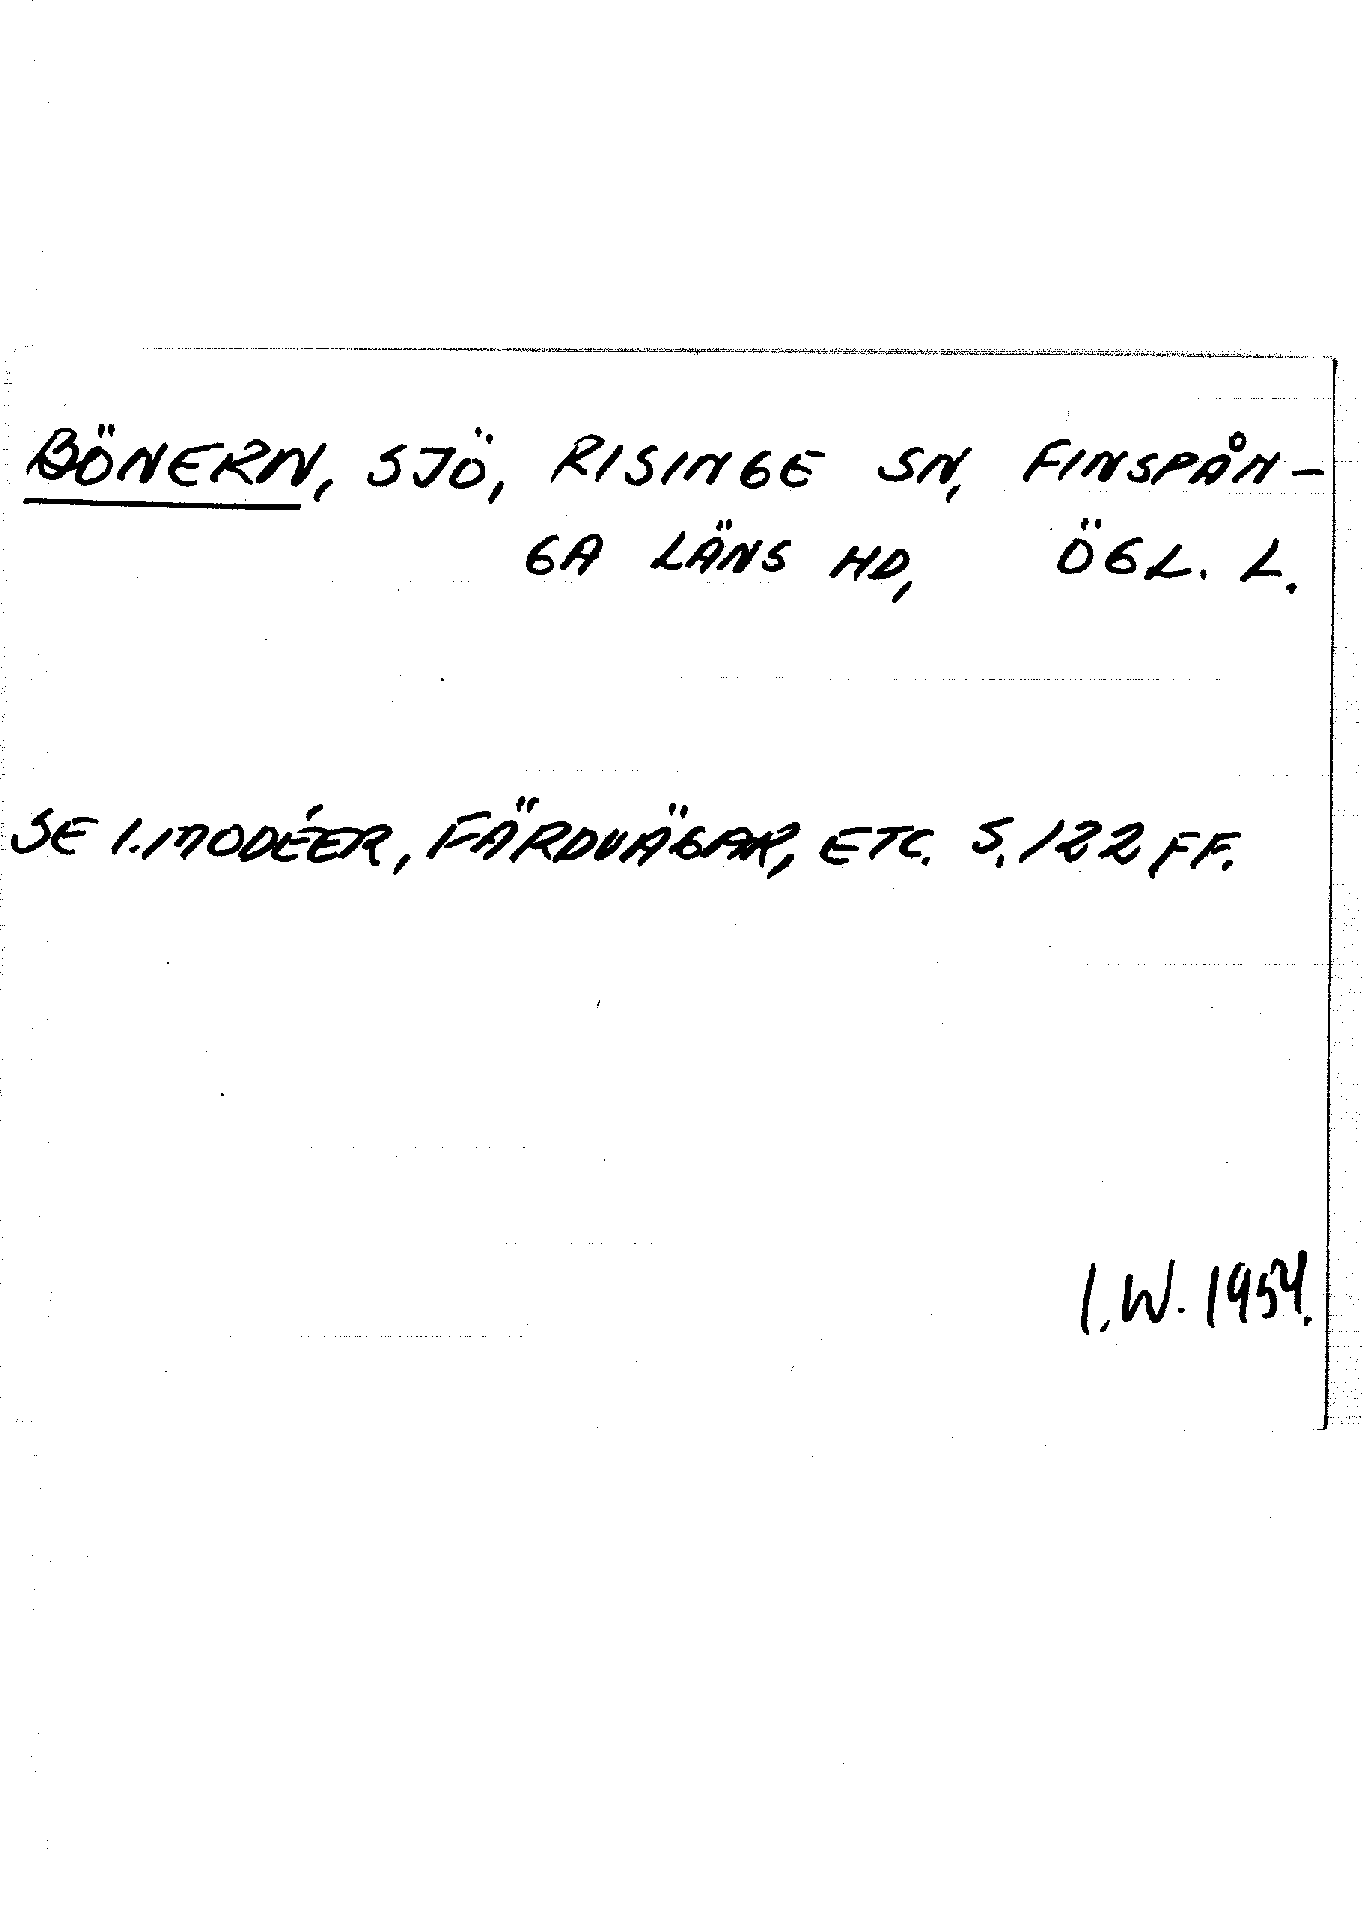 BÖNERN, SJÖ, RISINGE SN, FINSPÅN-
GA LÄNS HD, ÖGL. L.
SE I. MODÉER, FÄRDVÄGAR, ETC. S. 122 FF.
I. W. 1954.